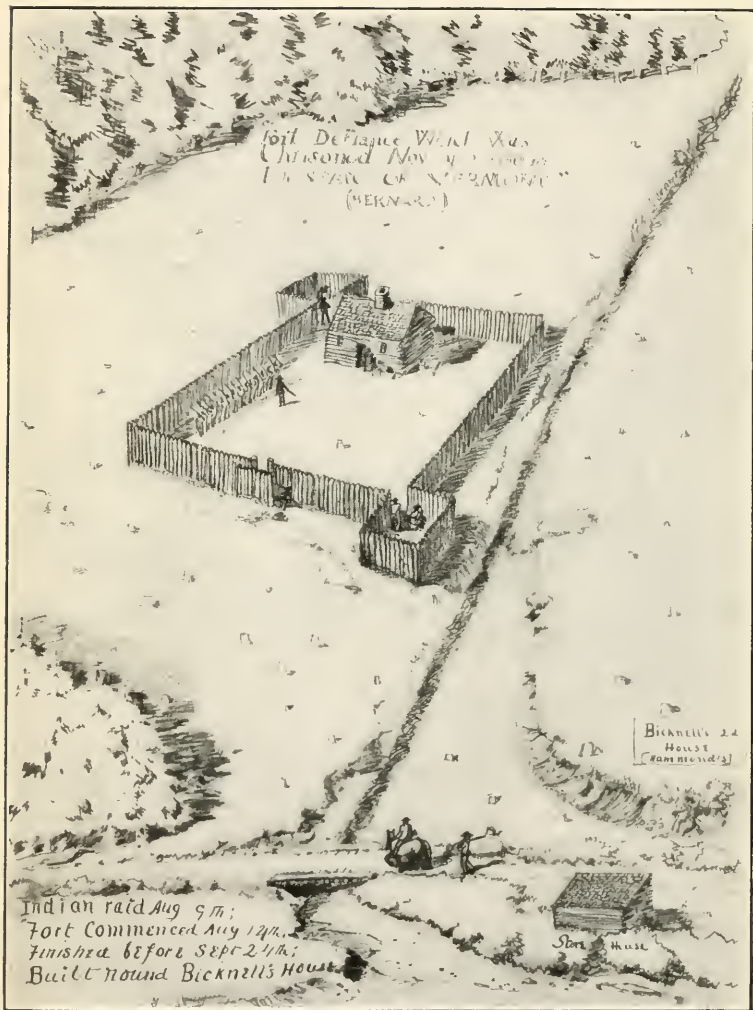 Fort Defiance
Chrisoned Nov
OF
(BERNARD)
Bicknell's 2d
House
[Hammond's]
Indian raid Aug 9th;
Fort Commenced Aug 12th;
Finished before Sept 24th;
Built round Bicknell's House
Store House